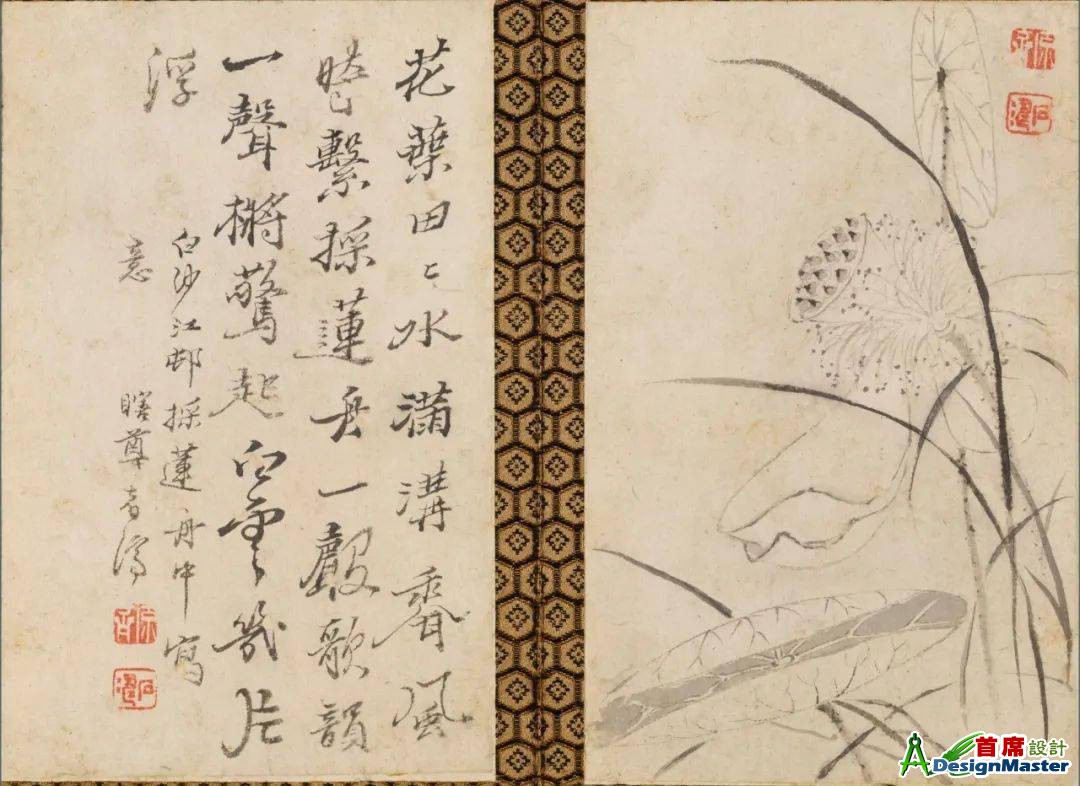 花葉田〻水滿溝香風
繫採蓮舟一聲歌韻
一聲槳驚起白雲幾片
浮
白沙江邨採蓮舟中寫
意 瞎尊者濟
石濤
石濤
首席設計
DesignMaster